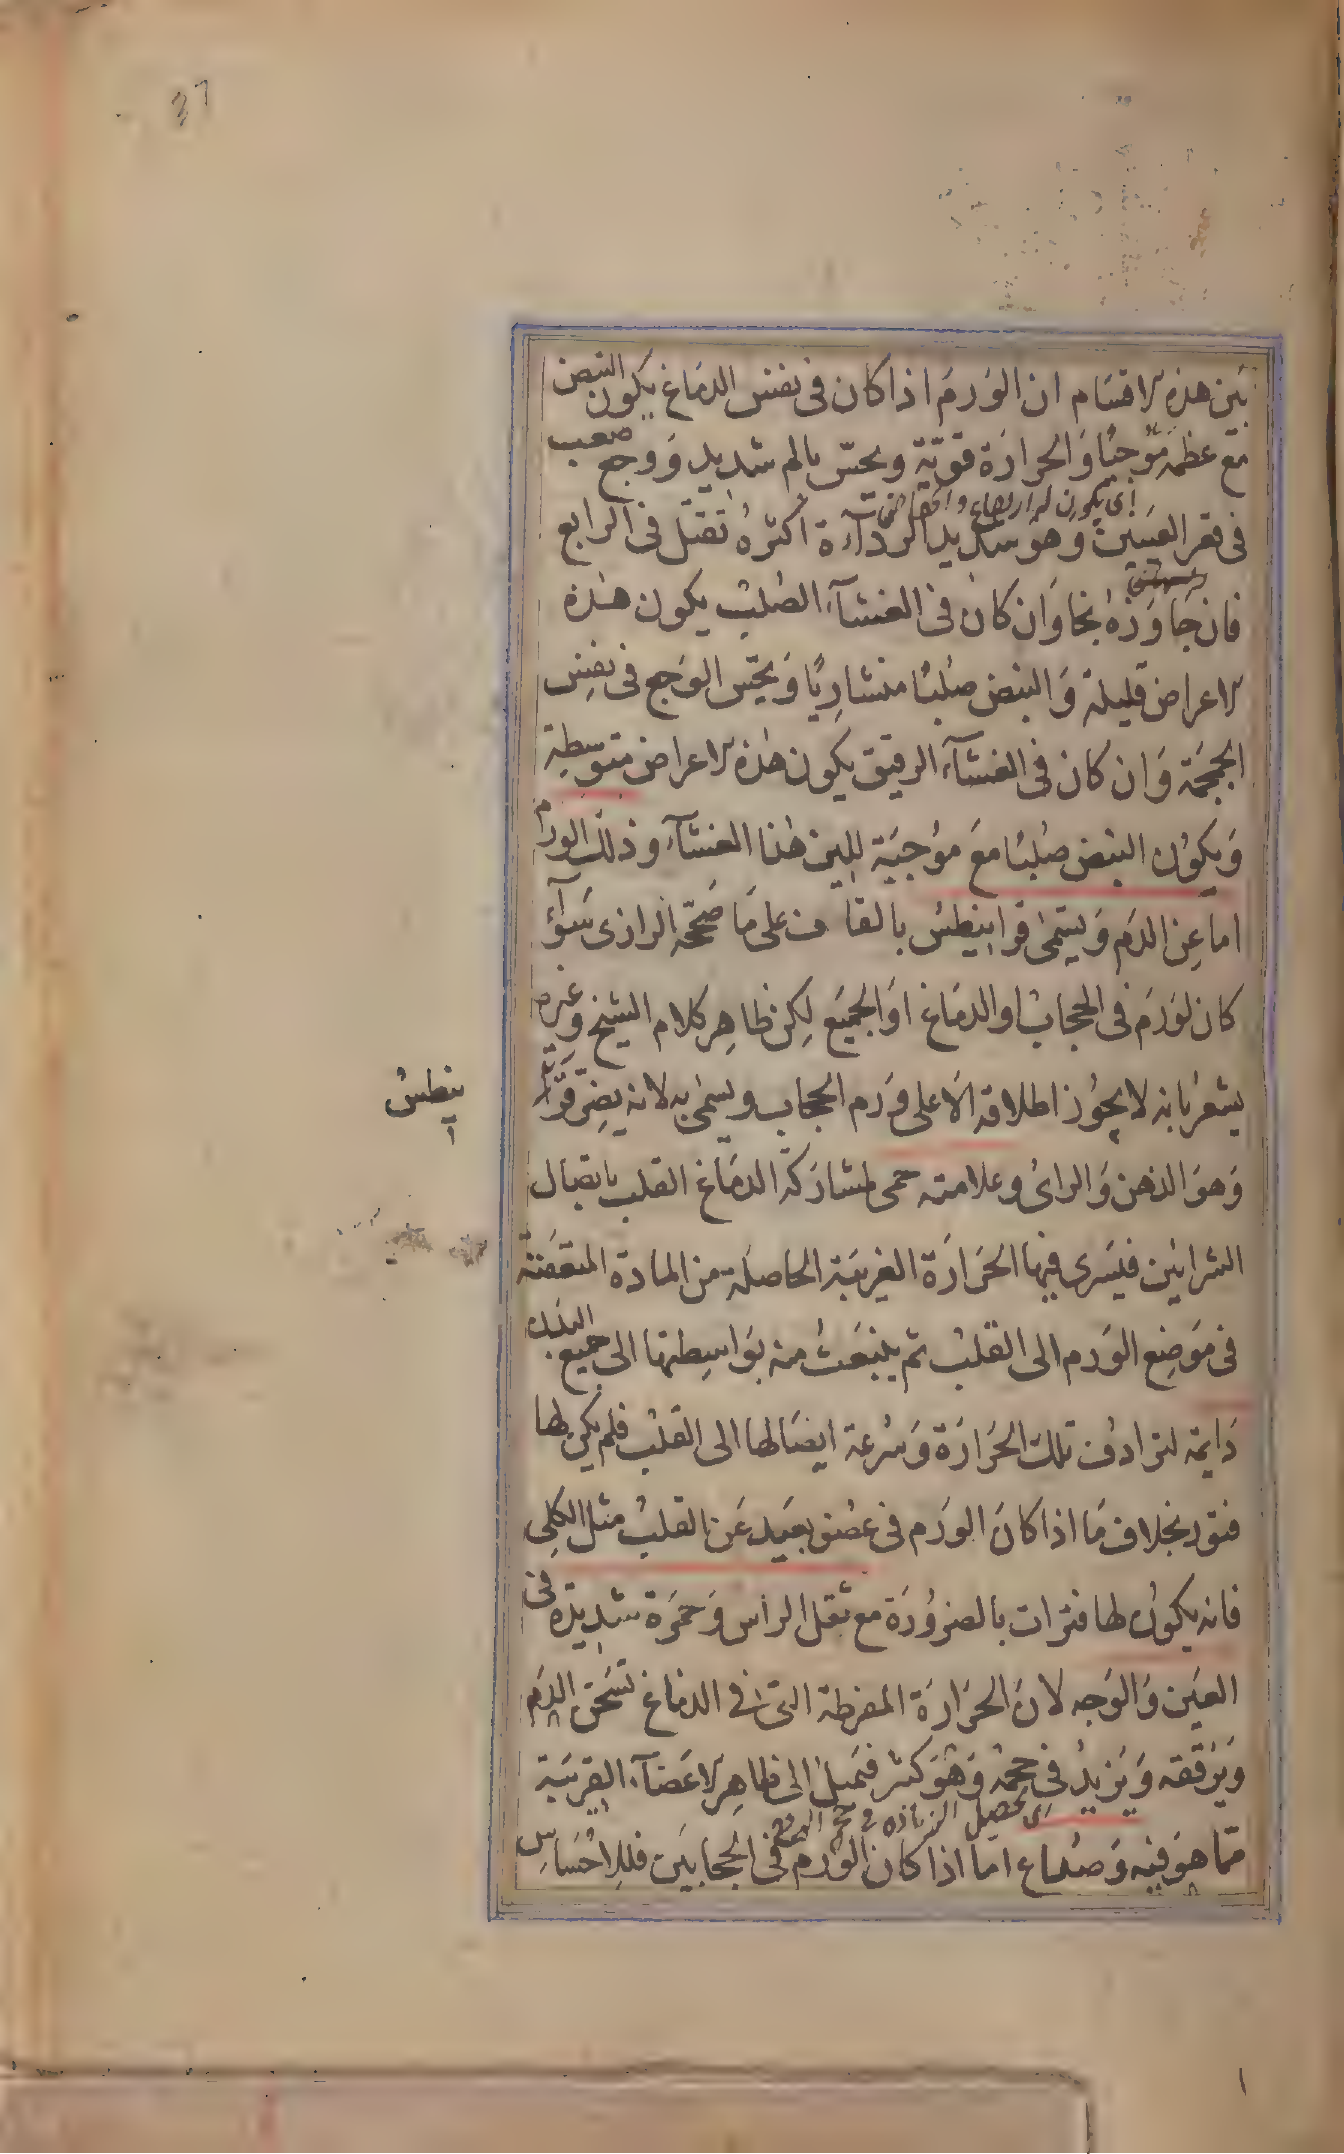 بين هذه الاقسام ان الورم اذا كان فى نفس الدماغ يكون النبض
مع عظمه موجيا والحرارة قوية ويحس بالم شديد ووجع صعب
اى يكون له ارتفاع وانخفاض
فى قعر العينين وهو شديد الرداءة اكثره تقتل فى الرابع
فان جاوزه نجا وان كان فى الغشاء الصلب يكون هذه
الاعراض قليلة والنبض صلبا منشاريا ويحس الوجع فى نفس
الجمجمة وان كان فى الغشاء الرقيق يكون هذه الاعراض متوسطة
ويكون النبض صلبا مع موجية للين هذا الغشاء وذلك الورم
اما عن الدم ويسمى قرانيطس بالقاف على ما صححه الرازى سواء
كان لورم فى الحجاب او الدماغ او الجميع لكن ظاهر كلام الشيخ وغيره
يشعر بانه لا يجوز اطلاقه الا على ورم الحجاب ويسمى به لانه يضر قرا
نيطس
وهو الذهن والراى وعلامته حمى لمشاركة الدماغ القلب باتصال
الشرايين فيسرى فيها الحرارة الغريبة الحاصلة من المادة المتعفنة
فى موضع الورم الى القلب ثم ينبعث منه بواسطتها الى جميع البدن
دايمة لترادف تلك الحرارة وسرعة ايصالها الى القلب فلم يكن لها
فتور بخلاف ما اذا كان الورم فى عضو بعيد عن القلب مثل الكلى
فانه يكون لها فترات بالضرورة مع ثقل الراس وحمرة شديدة فى
العين والوجه لان الحرارة المفرطة التى فى الدماغ تسخن الدم
ويرققه ويزيد فى حجمه وهو كثير فتميل الى ظاهر الاعضاء القريبة
اى تحصيل الزيادة فى حجم الدم
مما هو فيه وصداع اما اذا كان الورم فى الحجابين فللاحساس